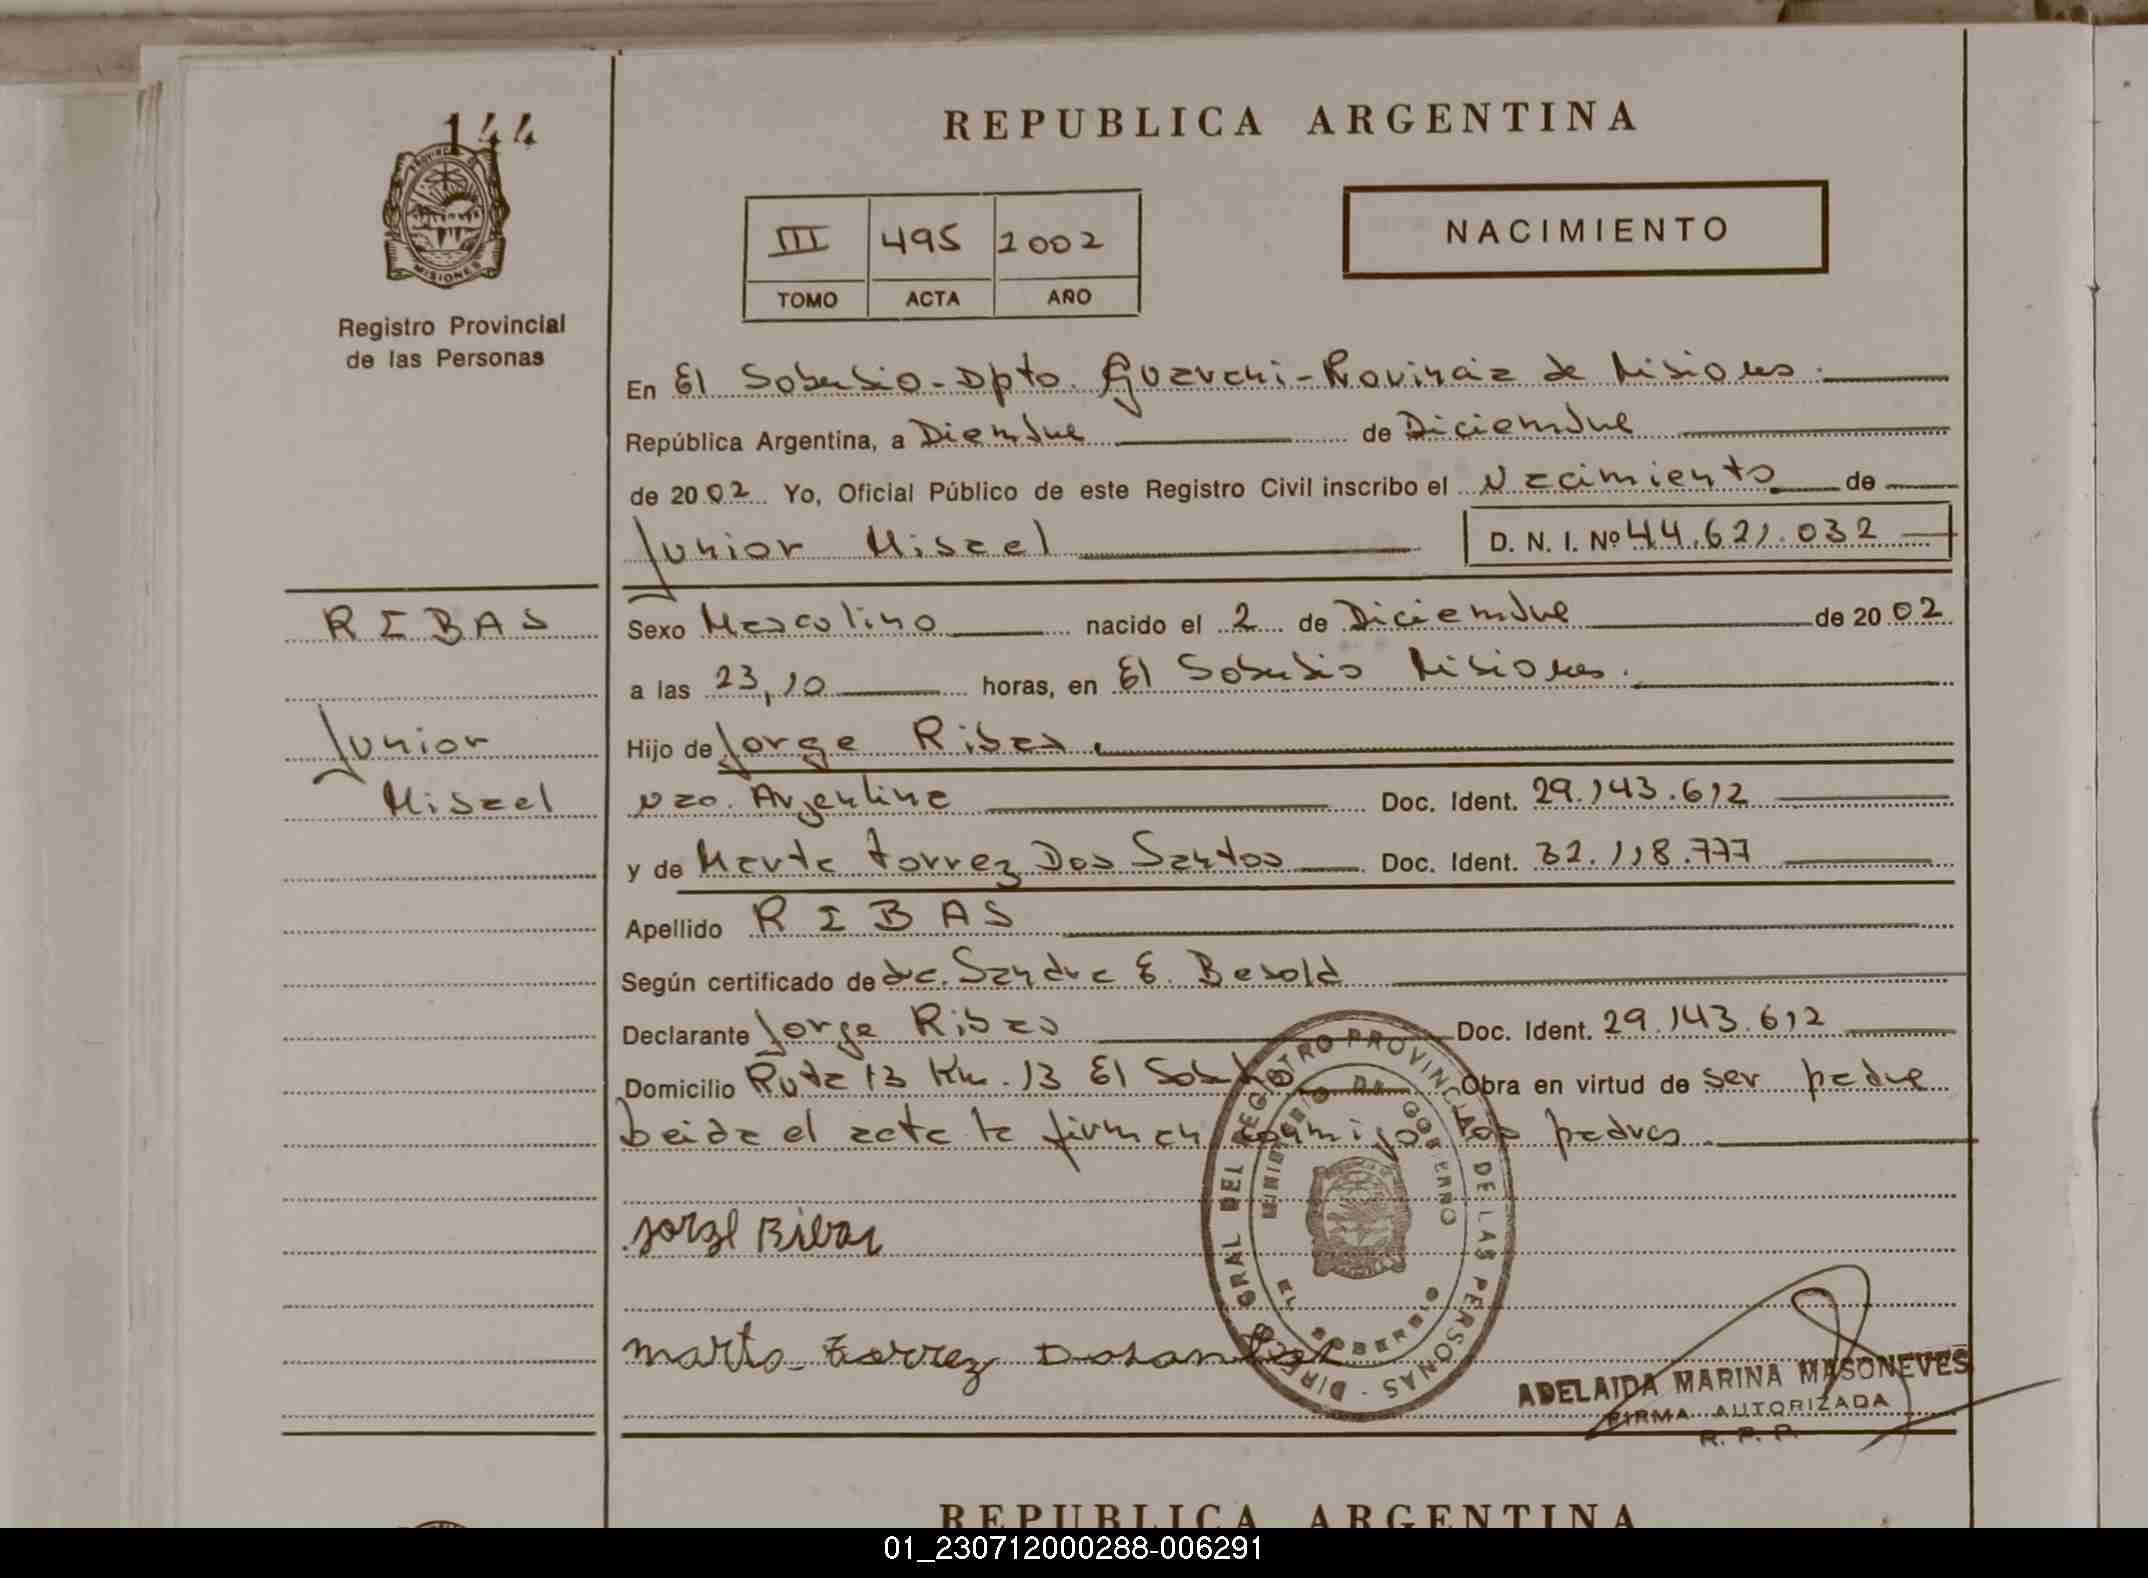 144
PROVINCIA DE
MISIONES
Registro Provincial
de las Personas
REPUBLICA ARGENTINA
III 495 2002
TOMO ACTA AÑO
NACIMIENTO
En El Soberbio - Dpto. Guarani - Provincia de Misiones.
República Argentina, a Diembre de Diciembre
de 2002 Yo, Oficial Público de este Registro Civil inscribo el Nacimiento de
Junior Misael D. N. I. Nº 44.621.032
RIBAS
Junior
Misael
Sexo Masculino nacido el 2 de Diciembre de 2002
a las 23,10 horas, en El Soberbio Misiones.
Hijo de Jorge Ribas
Nac. Argentina Doc. Ident. 29.143.612
y de Marta Torrez Dos Santos Doc. Ident. 32.118.777
Apellido RIBAS
Según certificado de dra. Sandra E. Besold
Declarante Jorge Ribas Doc. Ident. 29.143.612
Domicilio Ruta 13 Km. 13 El Soberbio Obra en virtud de ser padre
Leida el acta la firman conmigo los padres
Jorge Ribas
Marta Torrez Dosantos
DIREC. GRAL DEL REGISTRO PROVINCIAL DE LAS PERSONAS
MINISTERIO DE GOBIERNO
EL SOBERBIO
ADELAIDA MARINA MASONEVES
FIRMA AUTORIZADA
R. P. P.
REPUBLICA ARGENTINA
01_230712000288-006291